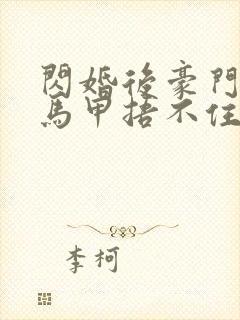 閃婚後豪門
馬甲捂不住
李柯